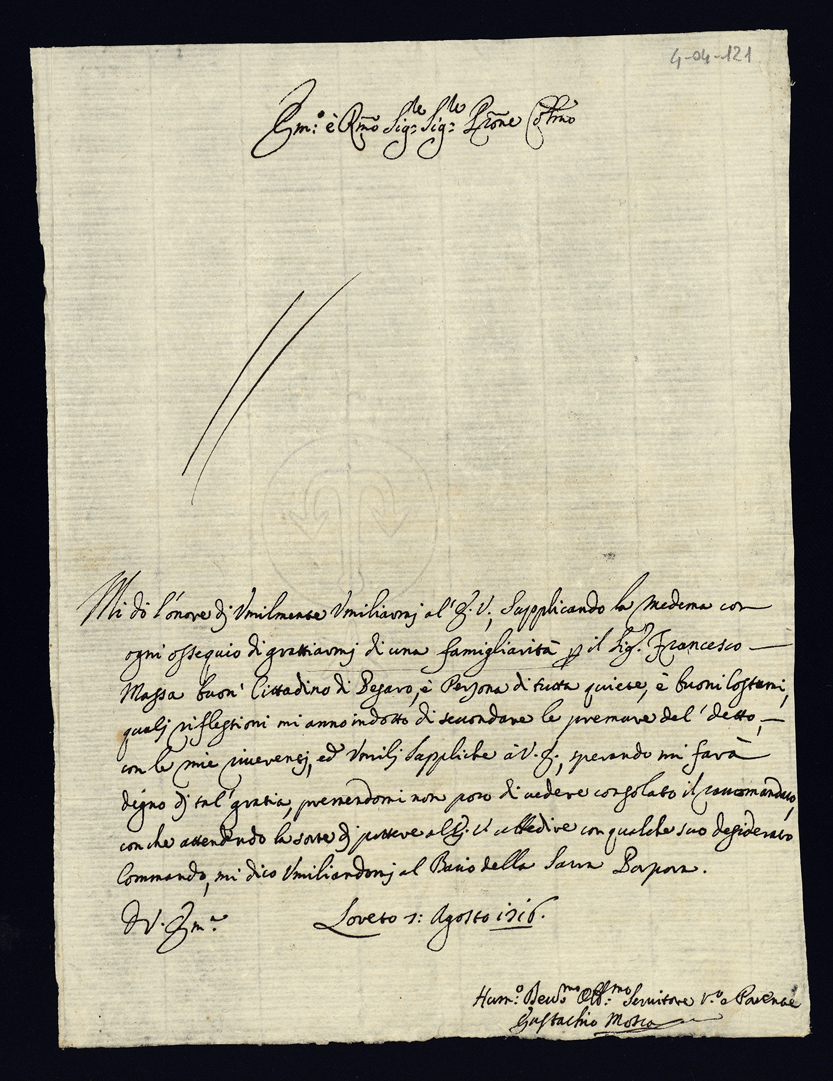 4-04-121
Em:º è Rmo Sigre Sigre Prone Colmo
Mi dò l'onore dj Vmilmente Vmiliarmj al'E. V, Supplicando la medema con
ogni ossequio di gratiarmj di una famigliarità p il Sigr. Francesco
Massa buon' Cittadino di Pesaro, è Persona di tutta quiete, è buoni Costumi,
qualj riflessioni mi anno indotto di secondare le premure del' detto,
con le mie riverentj, ed Vmilj Suppliche à V. E., sperando mi farà
degno dj tal' gratia, premendomi non poco di vedere consolato il raccomandato,
con che attendendo la sorte dj pottere al E. V. ubbedire con qualche suo desiderato
Commando, mi dico Vmiliandomj al Bacio della Sacra Porpora.
D V. Em:ª
Loreto 1: Agosto 1716.
Hum:º Devmo Obb:mo Servitore V:º e Parente
Eustachio Mosca